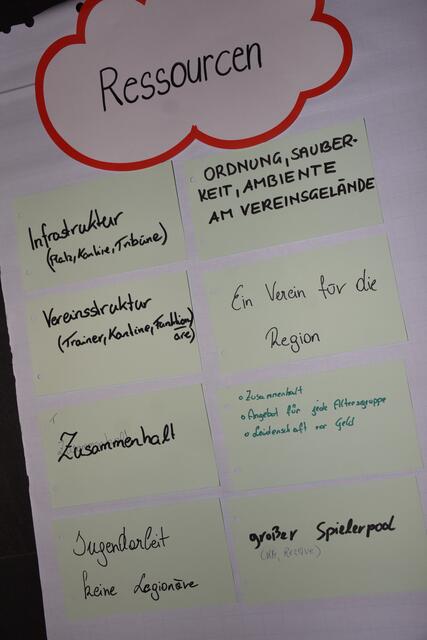 Ressourcen
Infrastruktur
(Platz, Kantine, Tribüne)
ORDNUNG, SAUBER-
KEIT, AMBIENTE
AM VEREINSGELÄNDE
Vereinsstruktur
(Trainer, Kantine, Funktion
äre)
Ein Verein für die
Region
Zusammenhalt
o Zusammenhalt
o Angebot für jede Altersgruppe
o Leidenschaft vor Geld
Jugendarbeit
keine Legionäre
großer Spielerpool
Reserve)